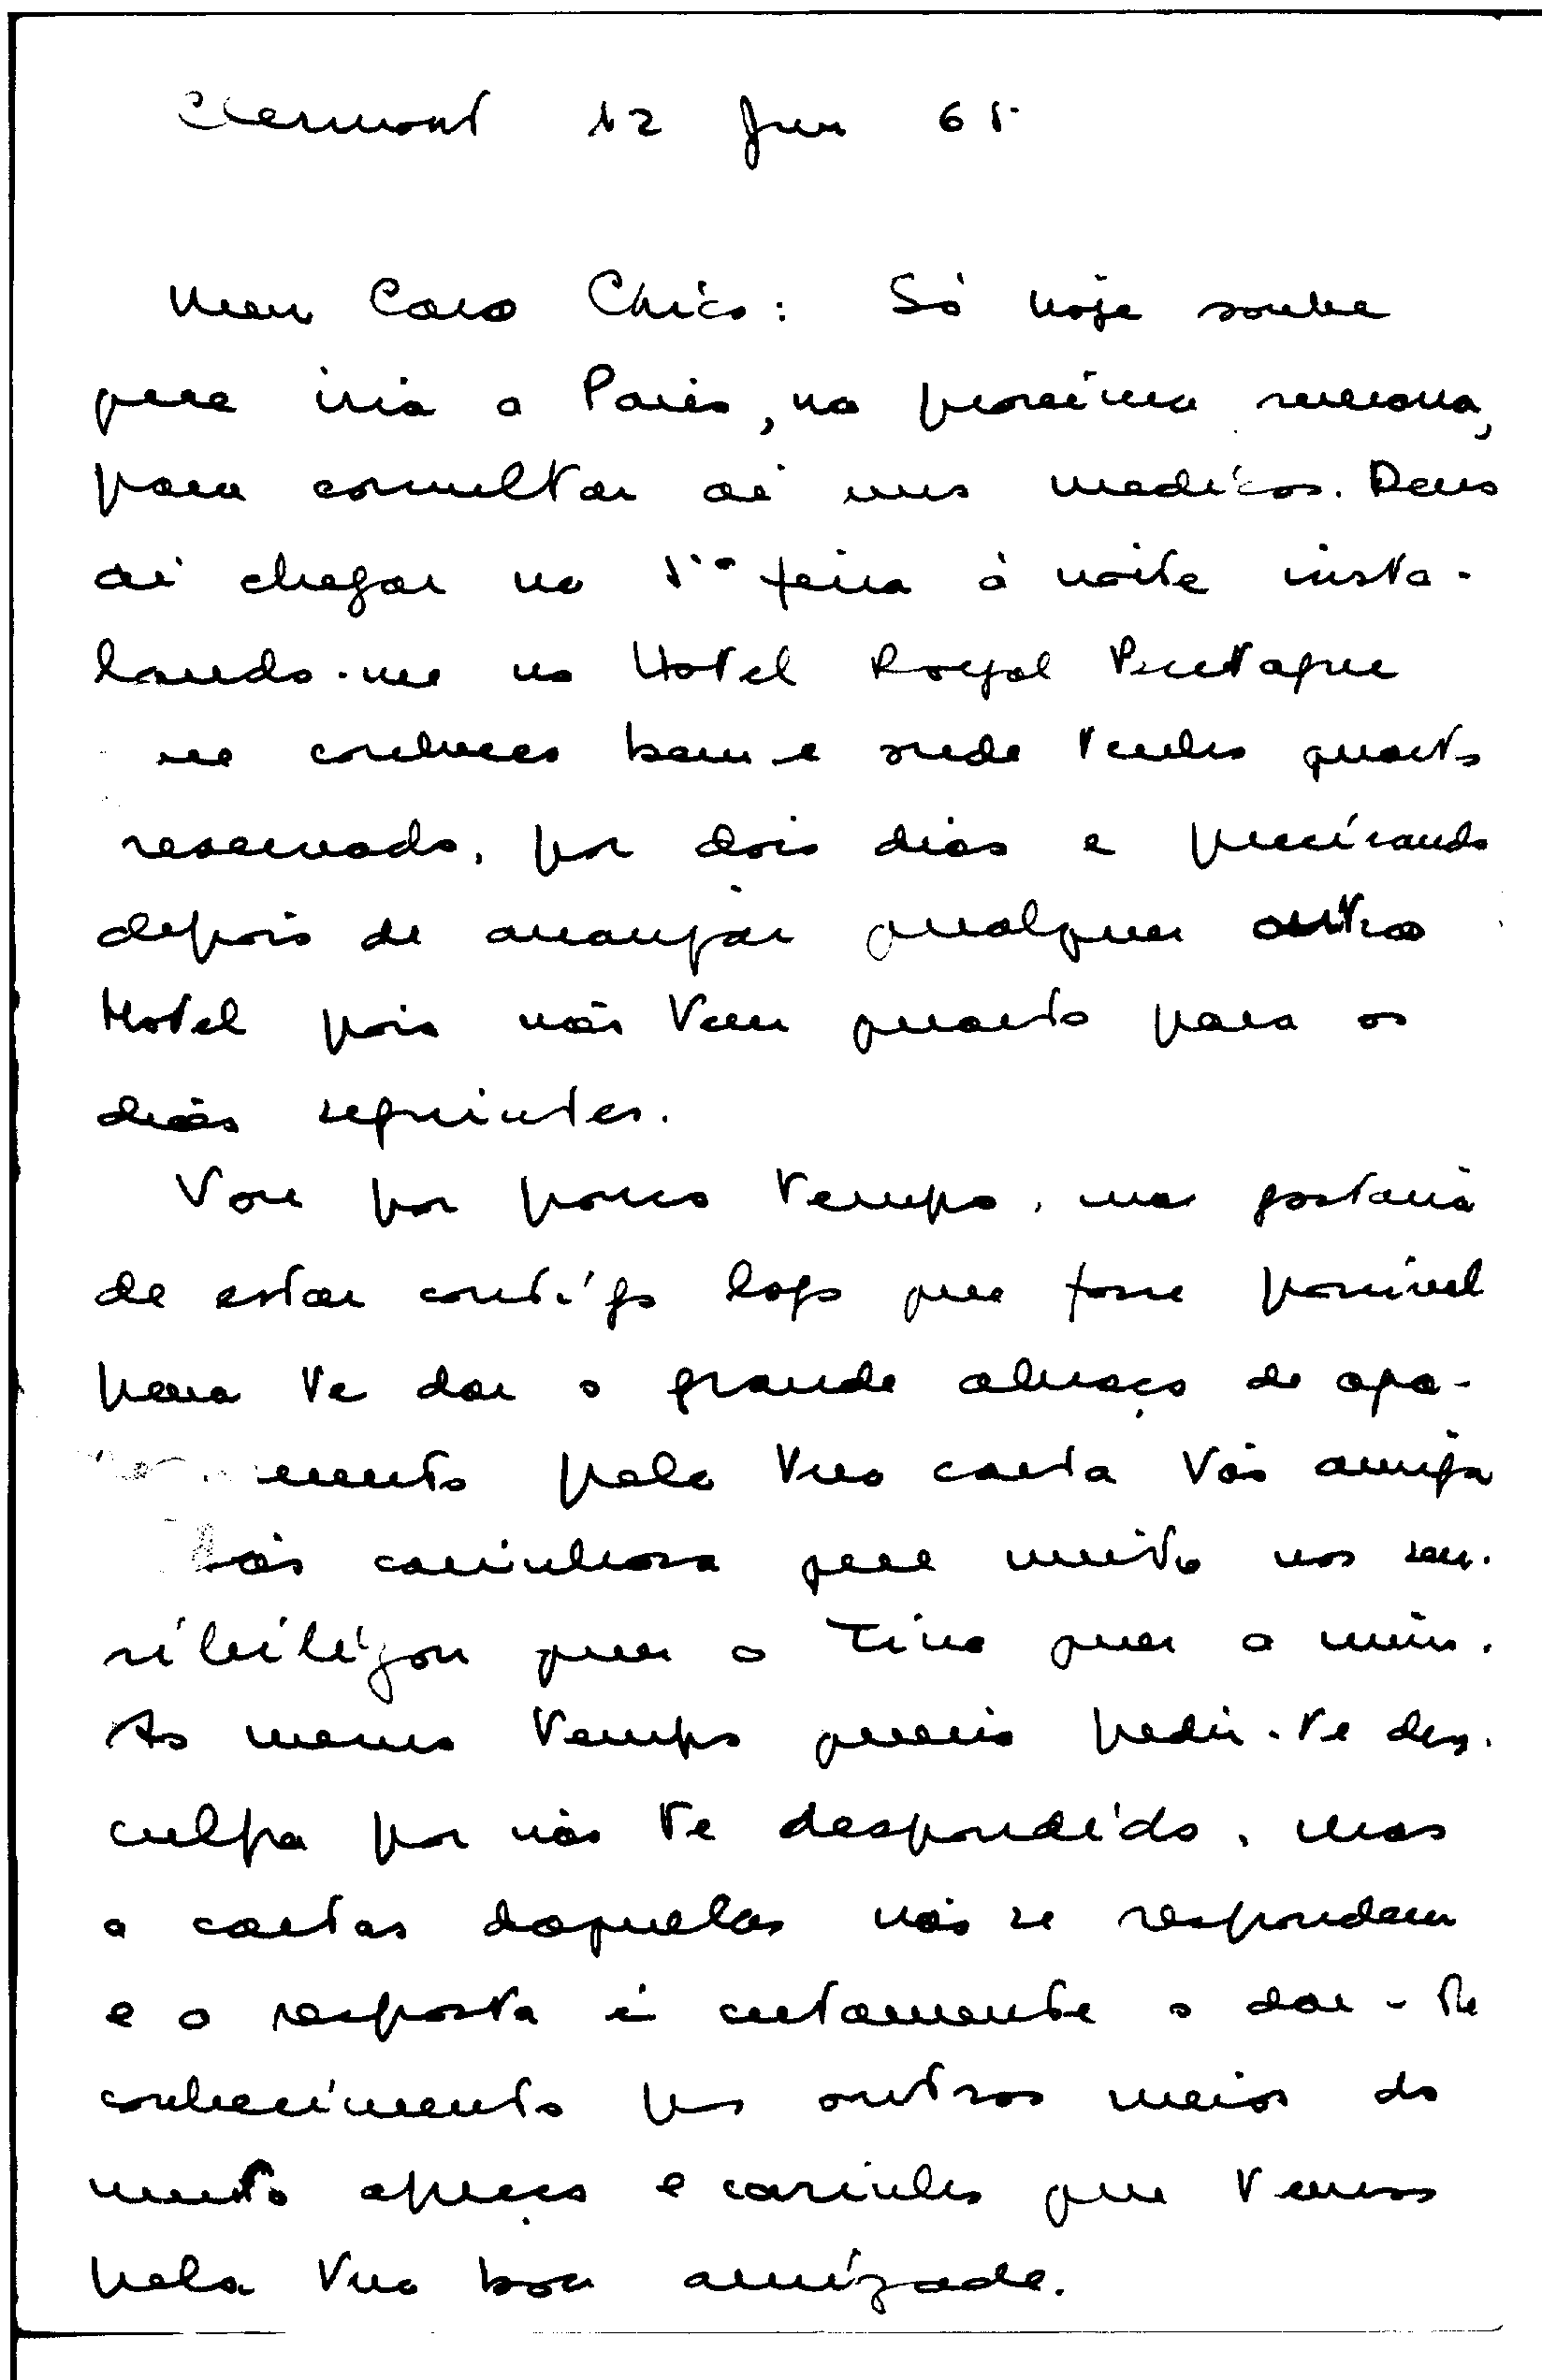 Clermont 12 Jun 65
Meu Caro Chico: Só hoje soube
que iria a Paris, na proxima semana,
para consultar aí uns medicos. Devo
aí chegar na 5ª feira à noite insta-
lando-me no Hotel Royal Bretagne
que conheces bem e onde tenho quarto
reservado, por dois dias e precisando
depois de arranjar qualquer outro
Hotel pois não tem quarto para os
dias seguintes.
Vou por pouco tempo, mas gostaria
de estar contigo logo que fosse possivel
para te dar o grande abraço de agra-
mento pela tua carta tão amiga
tão carinhosa que muito nos sen-
sibilizou quer a Tina quer a mim.
Ao mesmo tempo queria pedir-te des-
culpa por não te respondido, mas
a cartas daquelas não se respondem
e a resposta é certamente o dar-te
conhecimento por outros meios do
muito apreço e carinho que temos
pela tua boa amizade.